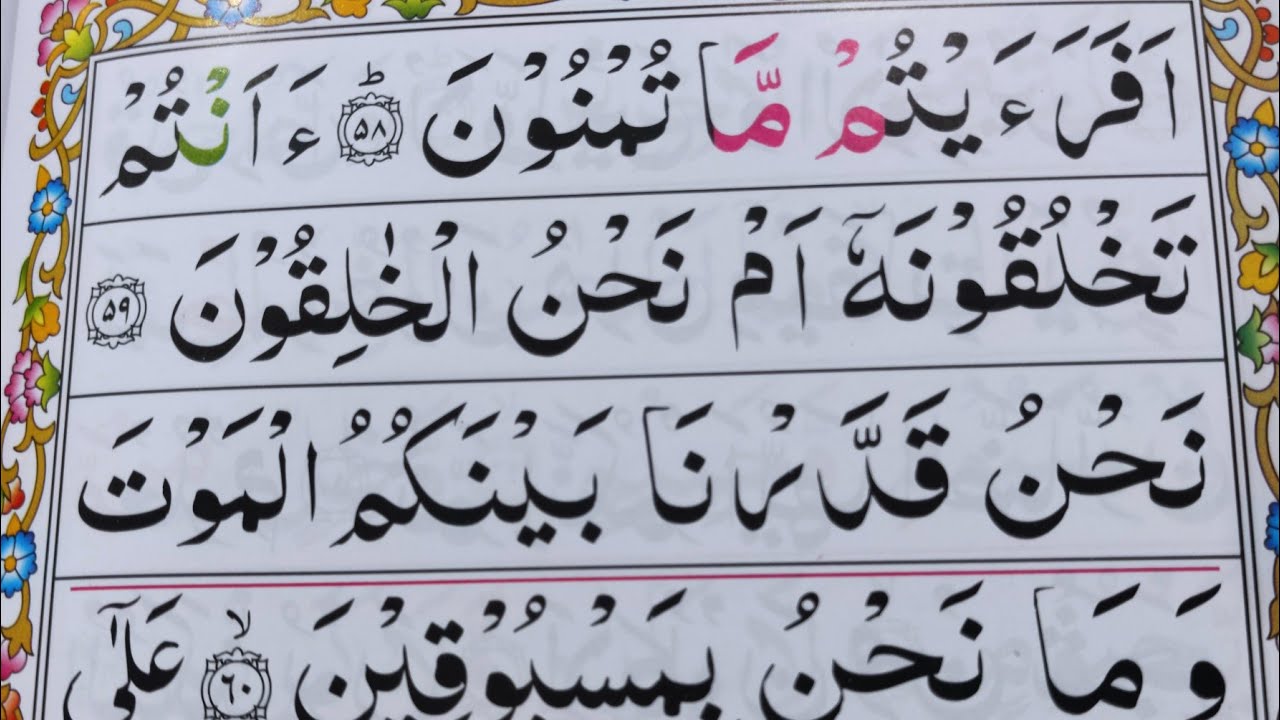 اَفَرَءَيْتُمْ مَّا تُمْنُوْنَ ؕ‏﴿۵۸﴾ ءَاَنْتُمْ
تَخْلُقُوْنَهٗۤ اَمْ نَحْنُ الْخٰلِقُوْنَ ﴿۵۹﴾
نَحْنُ قَدَّرْنَا بَيْنَكُمُ الْمَوْتَ
وَمَا نَحْنُ بِمَسْبُوْقِيْنَ ۙ‏﴿۶۰﴾ عَلٰٓى